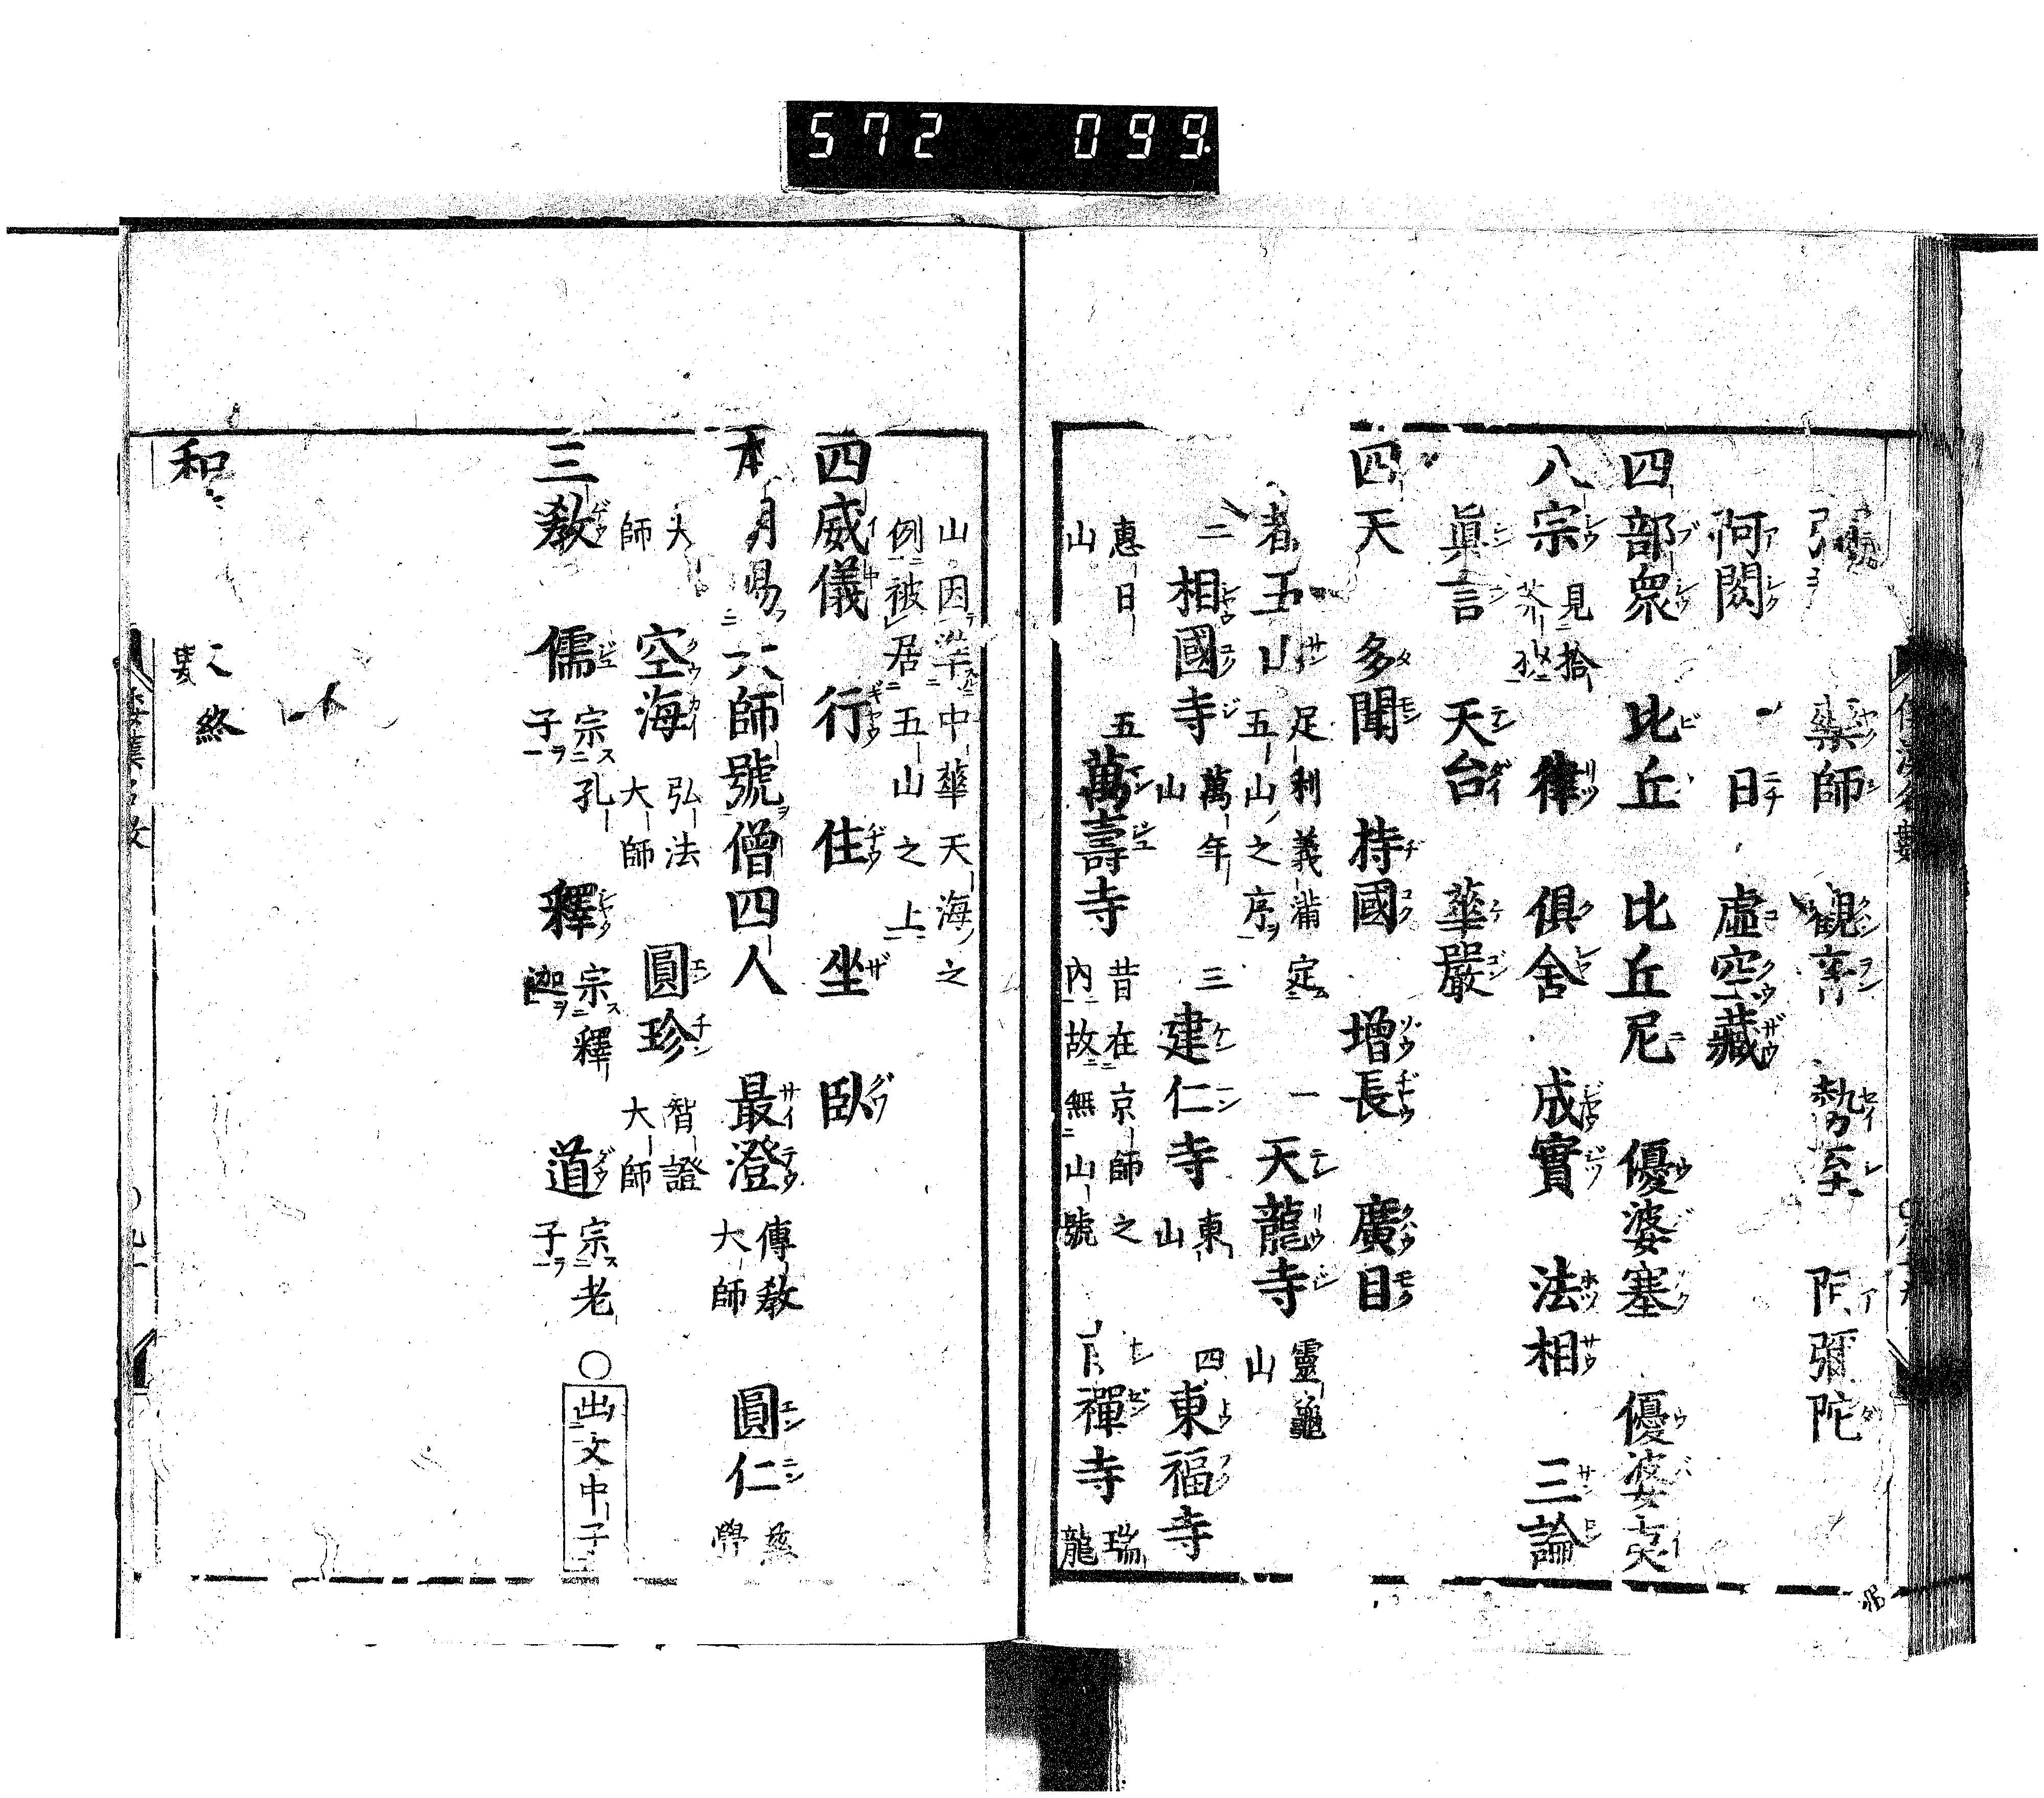 572 099.
藥師 觀音 勢至 阿彌陀
阿閦 日 虛空藏
四部衆 比丘 比丘尼 優婆塞 優婆夷
八宗 見拾芥 律 俱舍 成實 法相 三論
眞言 天台 華嚴
四天 多聞 持國 增長 廣目
五山 足利義滿定五山之序 一天龍寺 靈龜山
二相國寺 萬年山 三建仁寺 東山 四東福寺
惠日山 五萬壽寺 昔在京師之內故無山號 禪寺 瑞龍
山因准中華天海之例被居五山之上
四威儀 行 住 坐 臥
本朝賜大師號僧四人 最澄 傳教大師 圓仁 慈覺
大師 空海 弘法大師 圓珍 智證大師
三教 儒 宗孔子 釋 宗釋迦 道 宗老子 ○出文中子
和
終